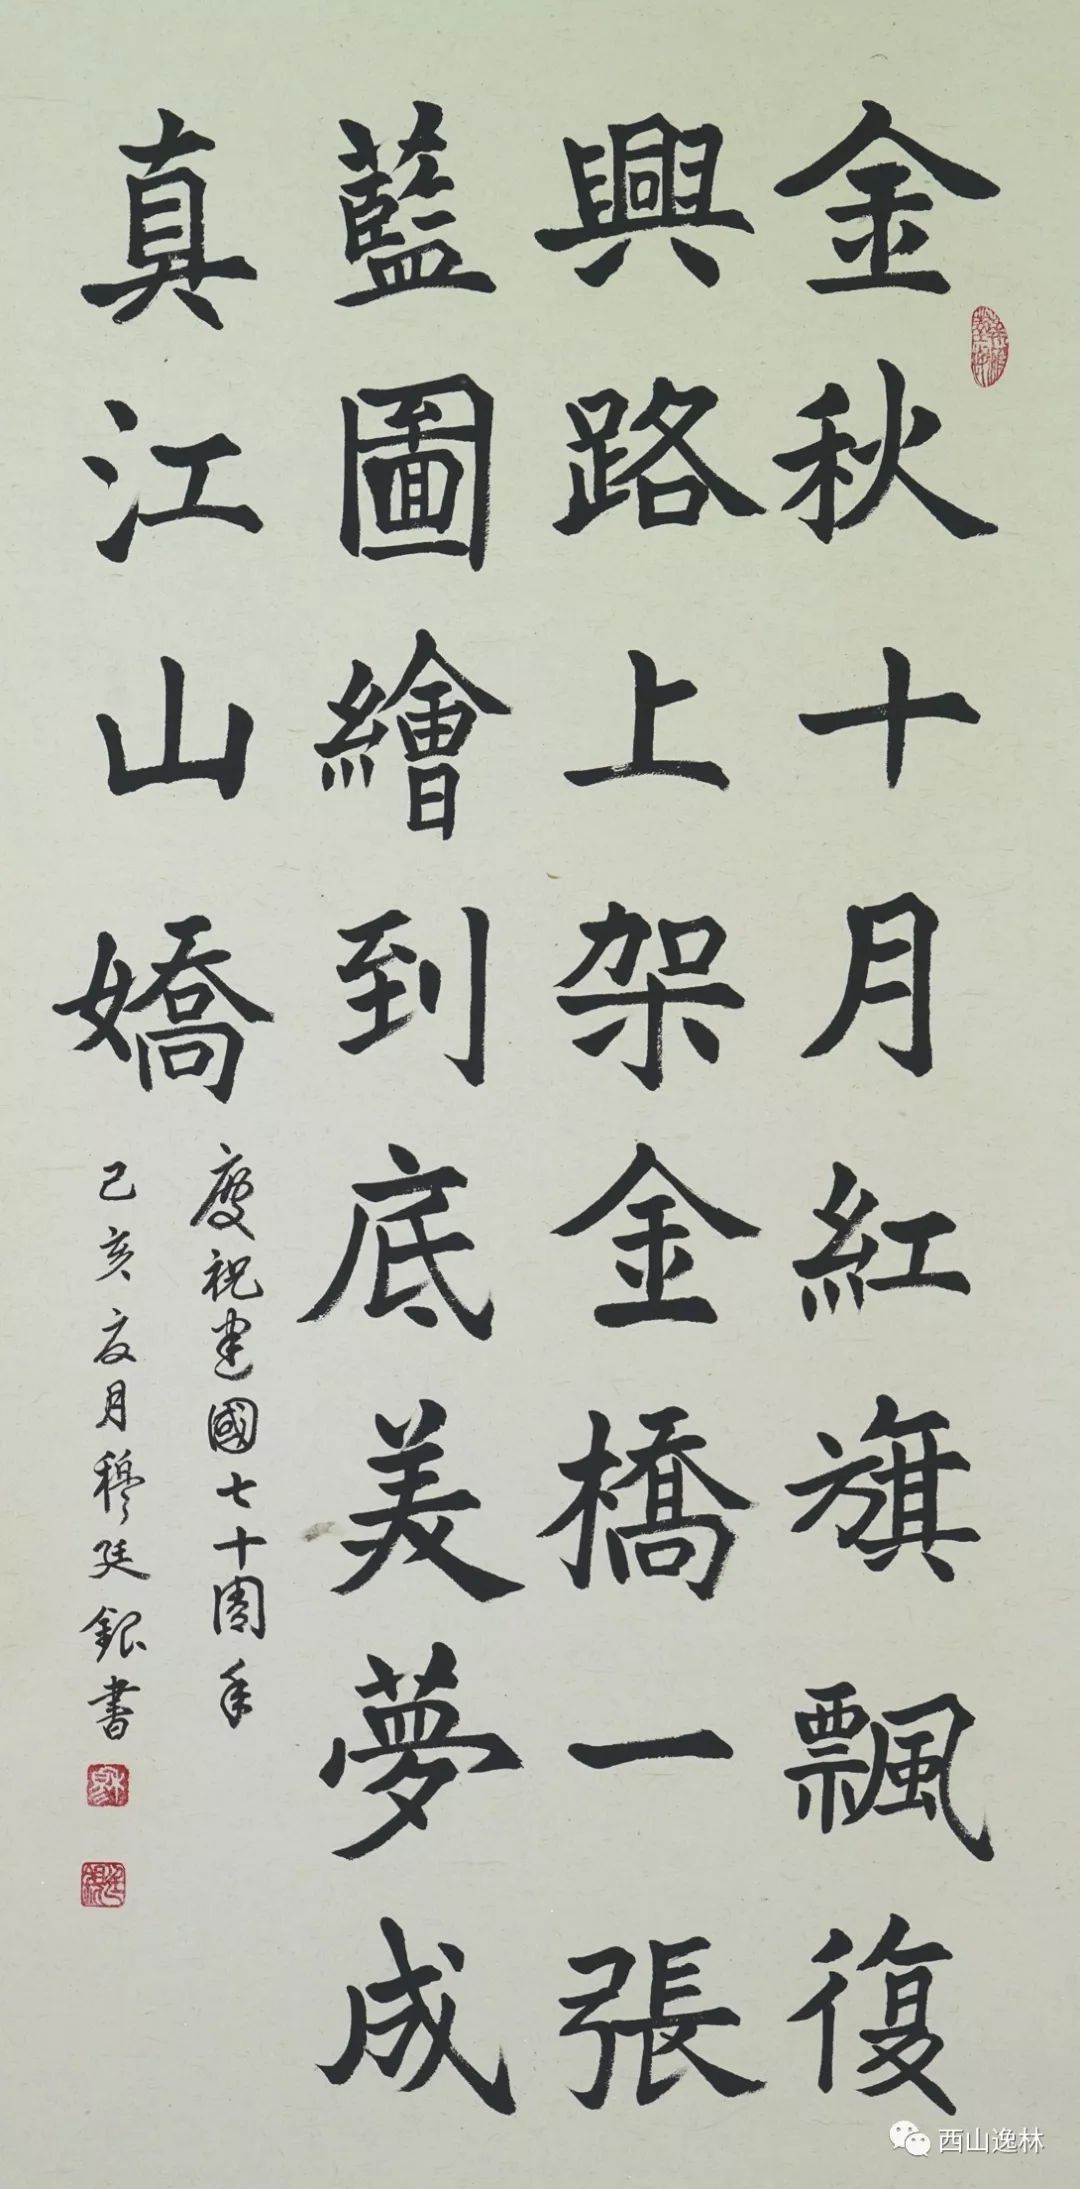 金秋十月紅旗飄復
興路上架金橋一張
藍圖繪到底美夢成
真江山嬌
慶祝建國七十周年
己亥夏月穆廷銀書
西山逸林